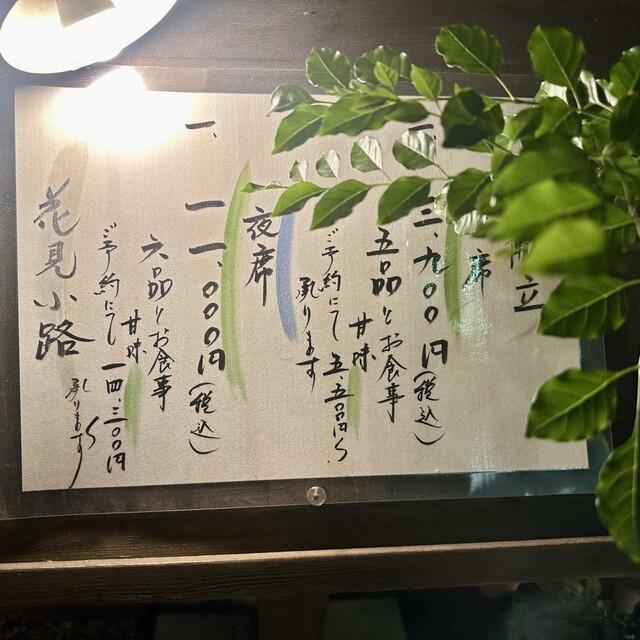 立
席
一、三、九〇〇円(税込)
五品とお食事
甘味
ご予約にて五五〇〇円〜
承ります
夜席
一、一一、〇〇〇円(税込)
六品とお食事
甘味
ご予約にて一四、三〇〇円〜
承ります
花見小路